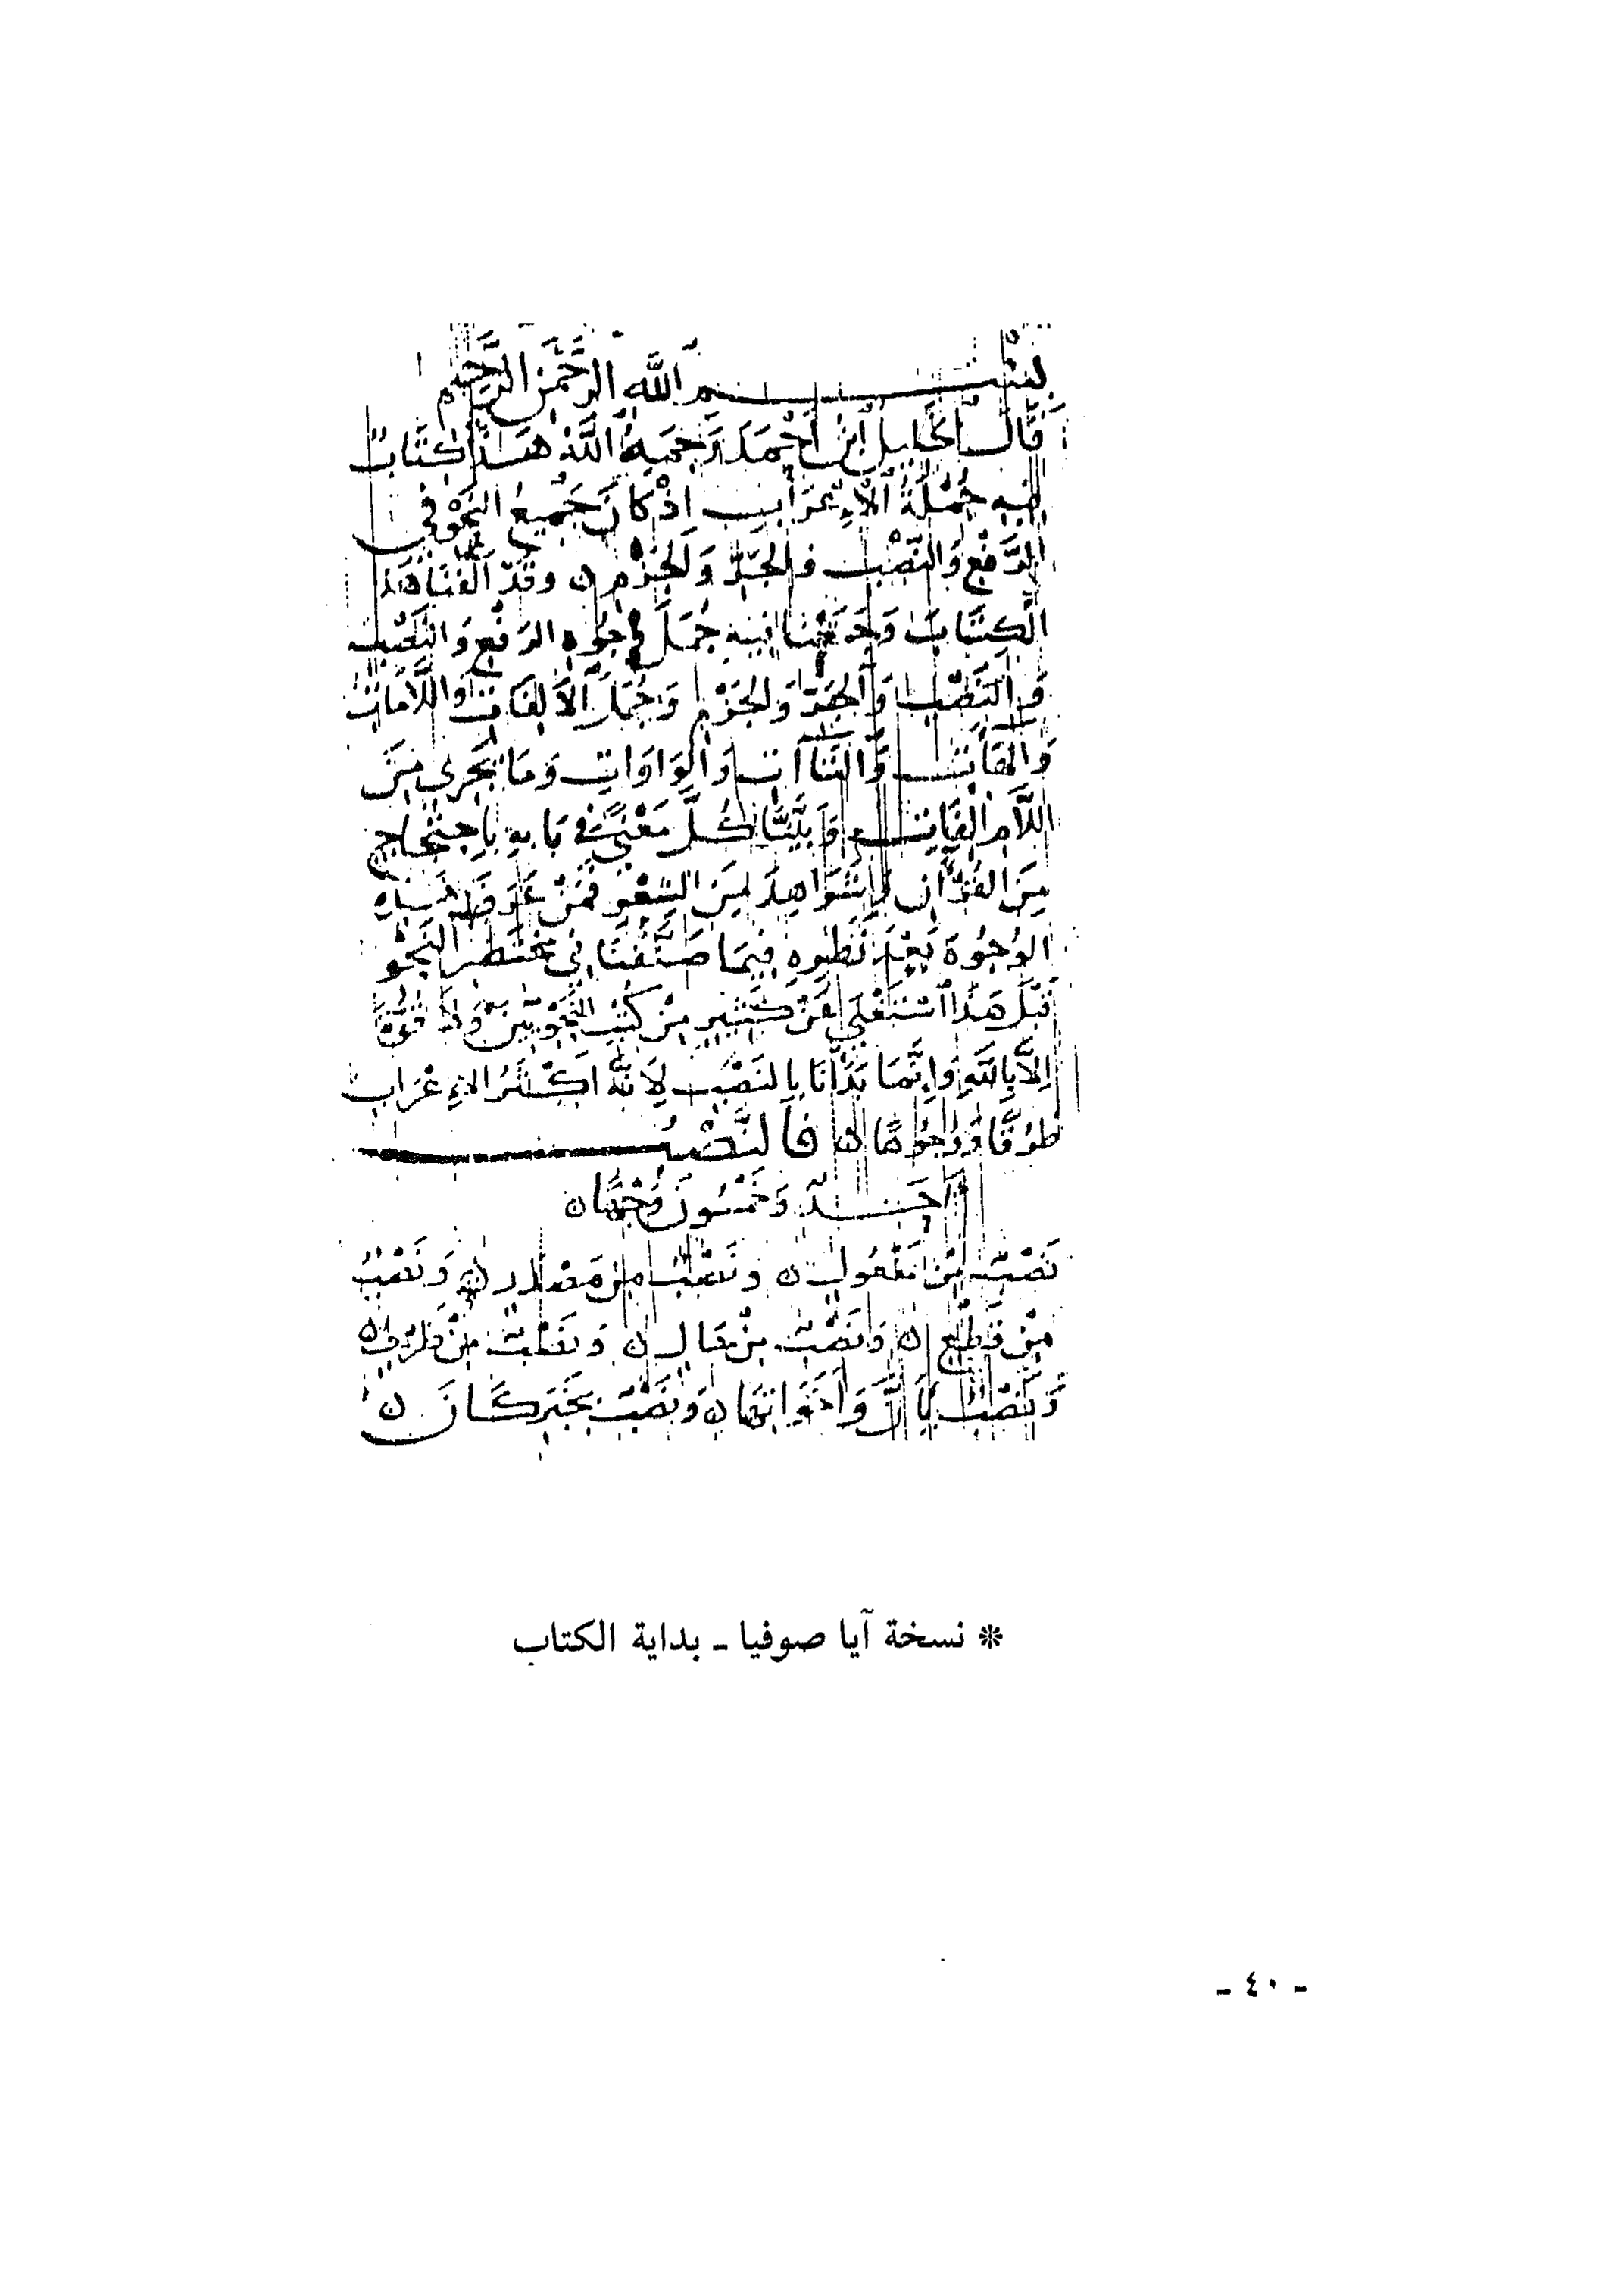 بِسْمِ اللَّهِ الرَّحْمَنِ الرَّحِيمِ
قَالَ الْخَلِيلُ ابْنُ أَحْمَدَ رَحِمَهُ اللَّهُ هَذَا كِتَابٌ
فِيهِ جُمْلَةُ الْإِعْرَابِ إِذْ كَانَ جَمِيعُ النَّحْوِ فِي
الرَّفْعِ وَالنَّصْبِ وَالْجَرِّ وَالْجَزْمِ ن وَقَدْ أَلَّفْنَا هَذَا
الْكِتَابَ وَجَمَعْنَا فِيهِ جُمَلَ وُجُوهِ الرَّفْعِ وَالنَّصْبِ
وَالنَّصْبِ وَالْجَرِّ وَالْجَزْمِ وَجُمَلَ الْأَلِفَاتِ وَاللَّامَاتِ
وَالْهَاآتِ وَالتَّاآتِ وَالْوَاوَاتِ وَمَا يَجْرِي مِنَ
اللَّامِ أَلِفَاتِ وَبَيَّنَّا كُلَّ مَعْنًى فِي بَابِهِ بِاحْتِجَاجٍ
مِنَ الْقُرْآنِ وَشَوَاهِدَ مِنَ الشِّعْرِ فَمَنْ عَرَفَ هَذِهِ
الْوُجُوهَ بَعْدَ نَظَرِهِ فِيمَا صَنَّفْنَا فِي مُخْتَصَرِ النَّحْوِ
قَبْلَ هَذَا اسْتَغْنَى عَنْ كَثِيرٍ مِنْ كُتُبِ النَّحْوِيِّينَ وَلَا قُوَّةَ
إِلَّا بِاللَّهِ وَإِنَّمَا بَدَأْنَا بِالنَّصْبِ لِأَنَّهُ أَكْثَرُ الْإِعْرَابِ
طُرُقًا وَوُجُوهًا ن فَالنَّصْبُ
أَحَدٌ وَخَمْسُونَ وَجْهًا ن
نَصْبٌ مِنْ مَفْعُولٍ ن وَنَصْبٌ مِنْ مَصْدَرٍ ن وَنَصْبٌ
مِنْ قَطْعٍ ن وَنَصْبٌ مِنْ حَالٍ ن وَنَصْبٌ مِنْ ظَرْفٍ ن
وَنَصْبٌ بِإِنَّ وَأَخَوَاتِهَا ن وَنَصْبٌ بِخَبَرِ كَانَ ن
❊ نسخة آيا صوفيا ـ بداية الكتاب
- ٤٠ -